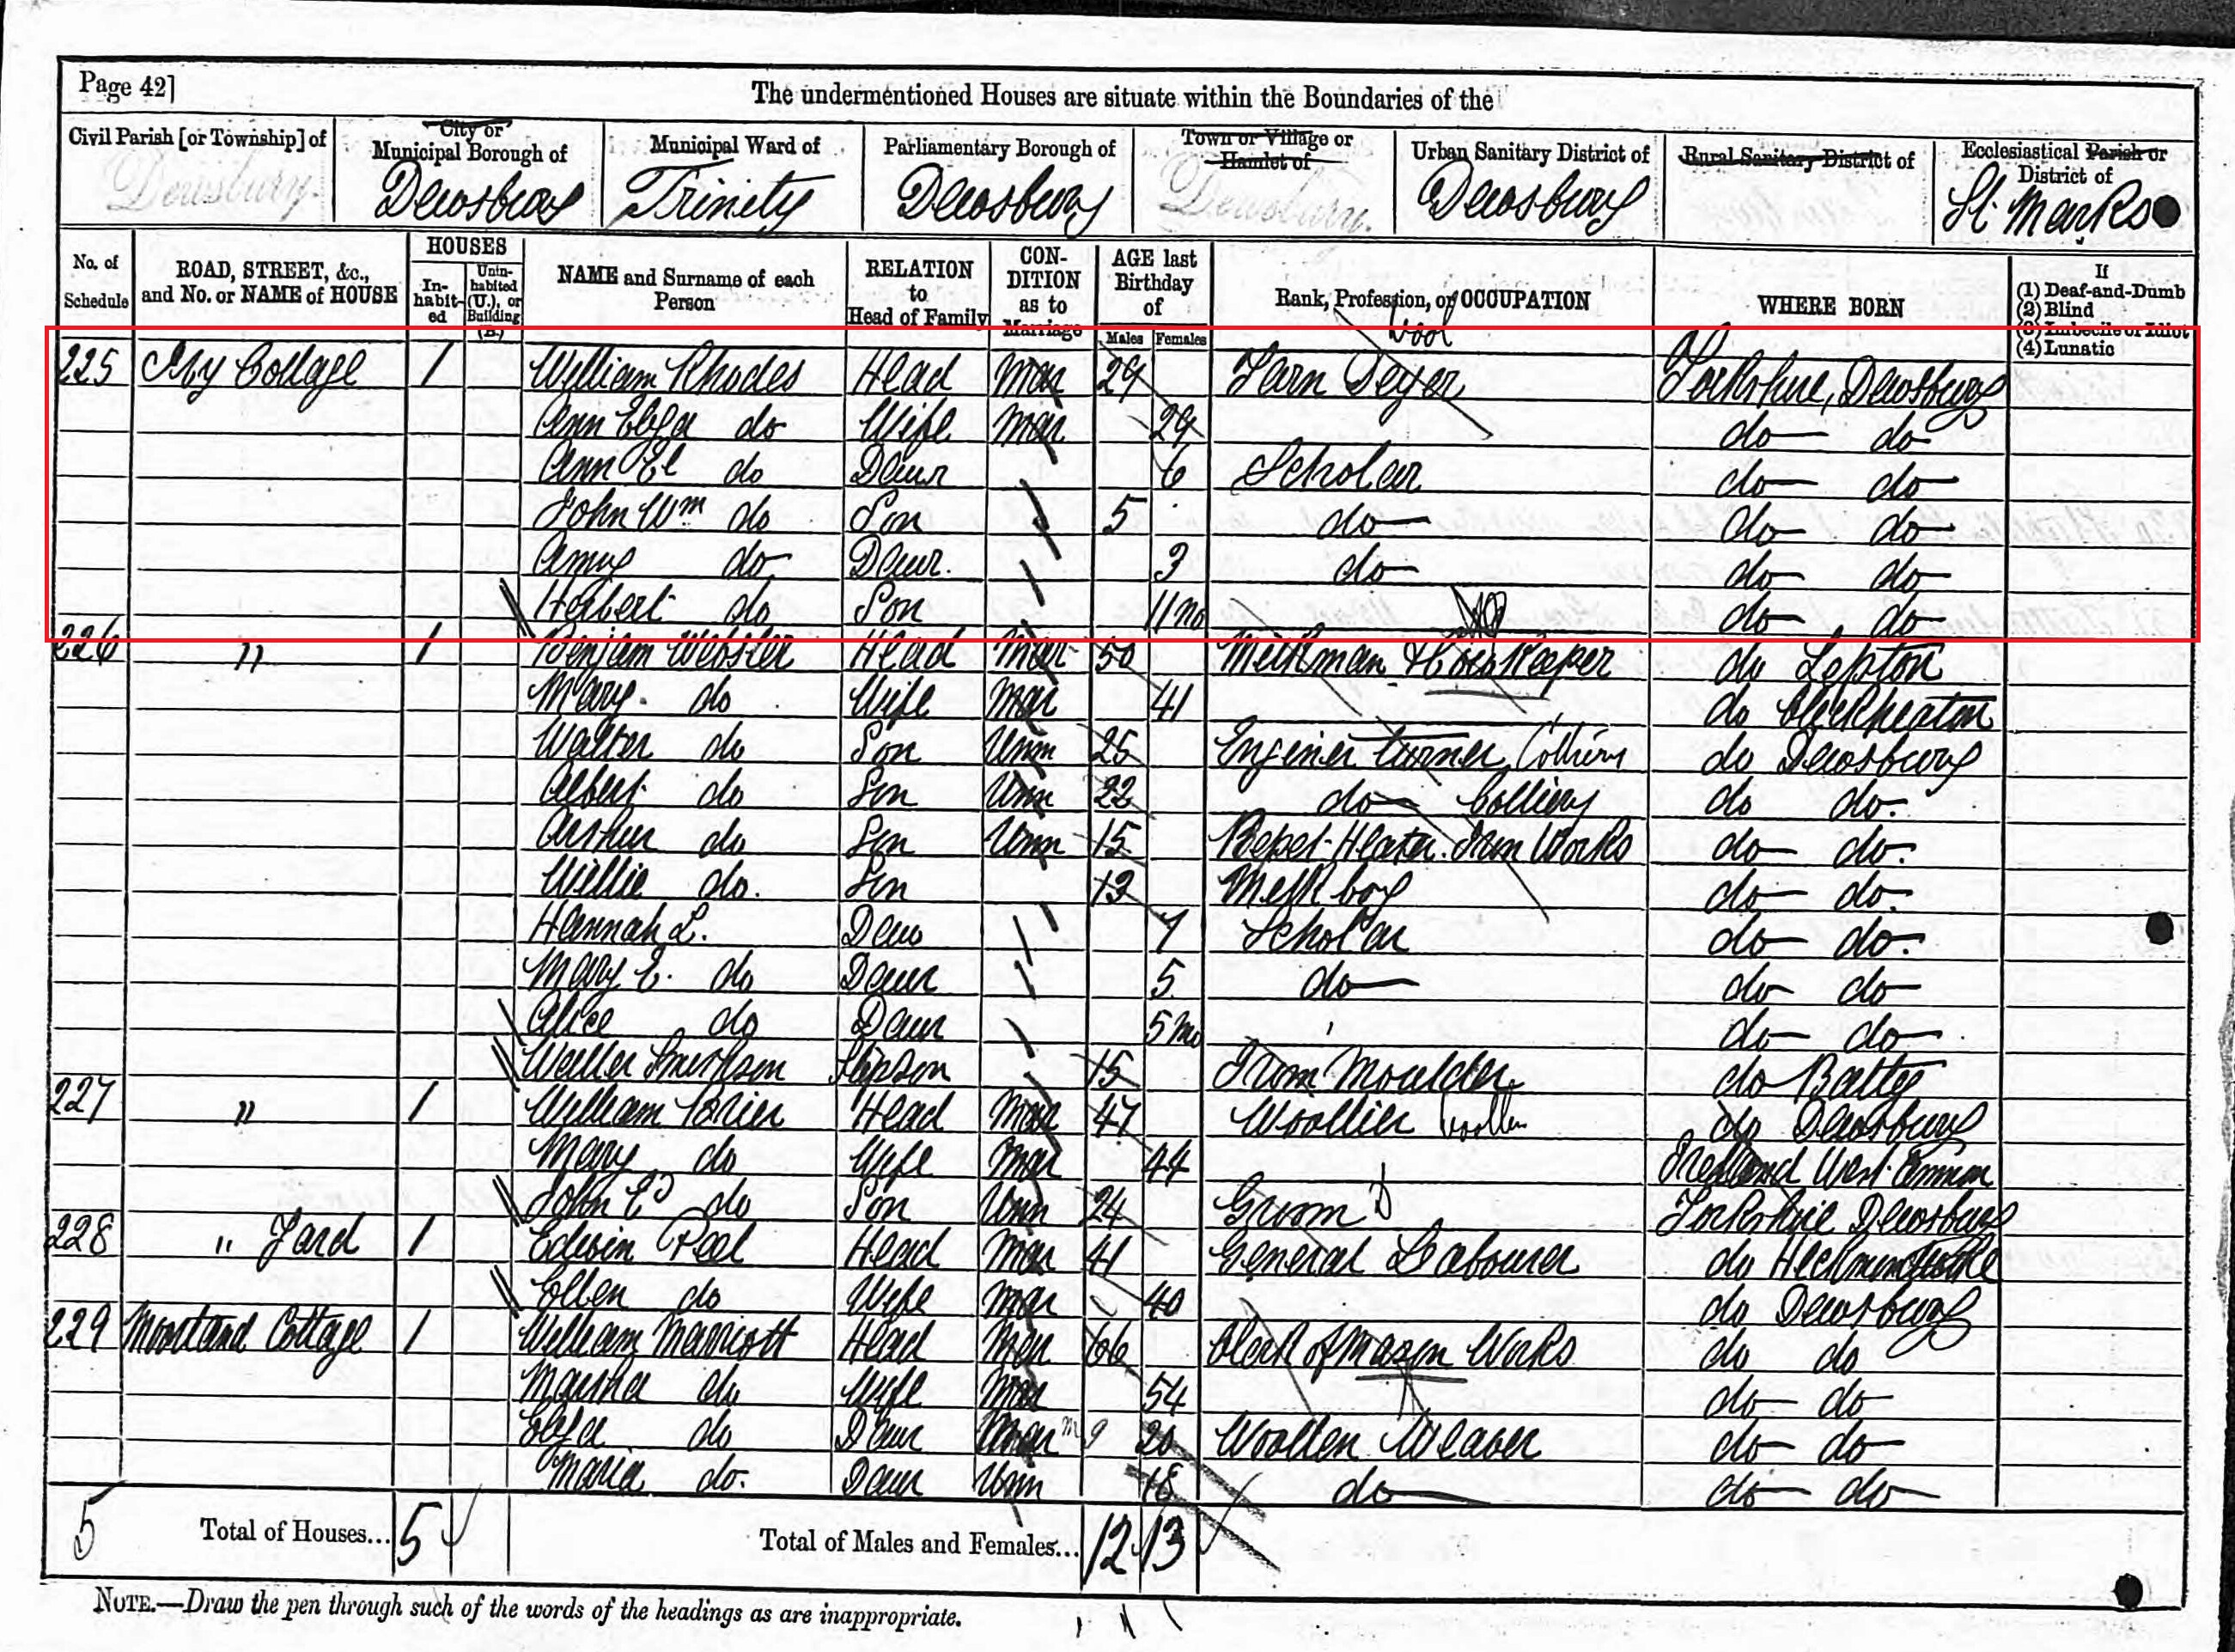 Page 42]
The undermentioned Houses are situate within the Boundaries of the
Civil Parish [or Township] of City or Municipal Borough of Municipal Ward of Parliamentary Borough of Town or Village or Hamlet of Urban Sanitary District of Rural Sanitary District of Ecclesiastical Parish or District of
Dewsbury Dewsbury Trinity Dewsbury Dewsbury Dewsbury St. Marks
No. of Schedule ROAD, STREET, &c., and No. or NAME of HOUSE HOUSES In-habit-ed Unin-habited (U.), or Building (B.) NAME and Surname of each Person RELATION to Head of Family CON-DITION as to Marriage AGE last Birthday of Males Females Rank, Profession, or OCCUPATION WHERE BORN If (1) Deaf-and-Dumb (2) Blind (3) Imbecile or Idiot (4) Lunatic
Wool
225 Ivy Cottage 1 William Rhodes Head Mar 29 Yarn Deyer Yorkshire, Dewsbury
Ann Eliza do Wife Mar 29 do do
Ann El do Daur 6 Scholar do do
John Wm do Son 5 do do do
Amy do Daur. 3 do do do
Herbert do Son 11 mo do do
226 " 1 Benjam Webster Head Mar 50 Milkman Keeper do Lepton
Mary. do Wife Mar 41 do Cleckheaton
Walter do Son Unm 25 Enginer turner do Dewsbury
Albert do Son Unm 22 do Colliery do do.
Arthur do Son Unm 15 Heater. Iron Works do do.
Willie do. Son 13 Milk boy do do.
Hannah L. Daur 7 Scholar do do.
Mary E. do Daur 5 do do do
Alice do Daur 5 mo do do
Walter Smithson Stepson 15 Iron Moulder do Batley
227 " 1 William Brier Head Mar 47 Woollen do Dewsbury
Mary do Wife Mar 44
John Ed do Son Unm 24 Groom D Yorkshire Dewsbury
228 " Yard 1 Edwin Peel Head Mar 41 General Labourer do Heckmondwike
Ellen do Wife Mar 40 do Dewsbury
229 Moorland Cottage 1 William Marriott Head Mar 66 Clerk of Mason Works do do
Martha do Wife Mar 54 do do
Eliza do Daur 20 Woollen Weaver do do
Maria do. Daur Unm 18 do do do
5 Total of Houses... 5 Total of Males and Females... 12 13
NOTE.—Draw the pen through such of the words of the headings as are inappropriate.